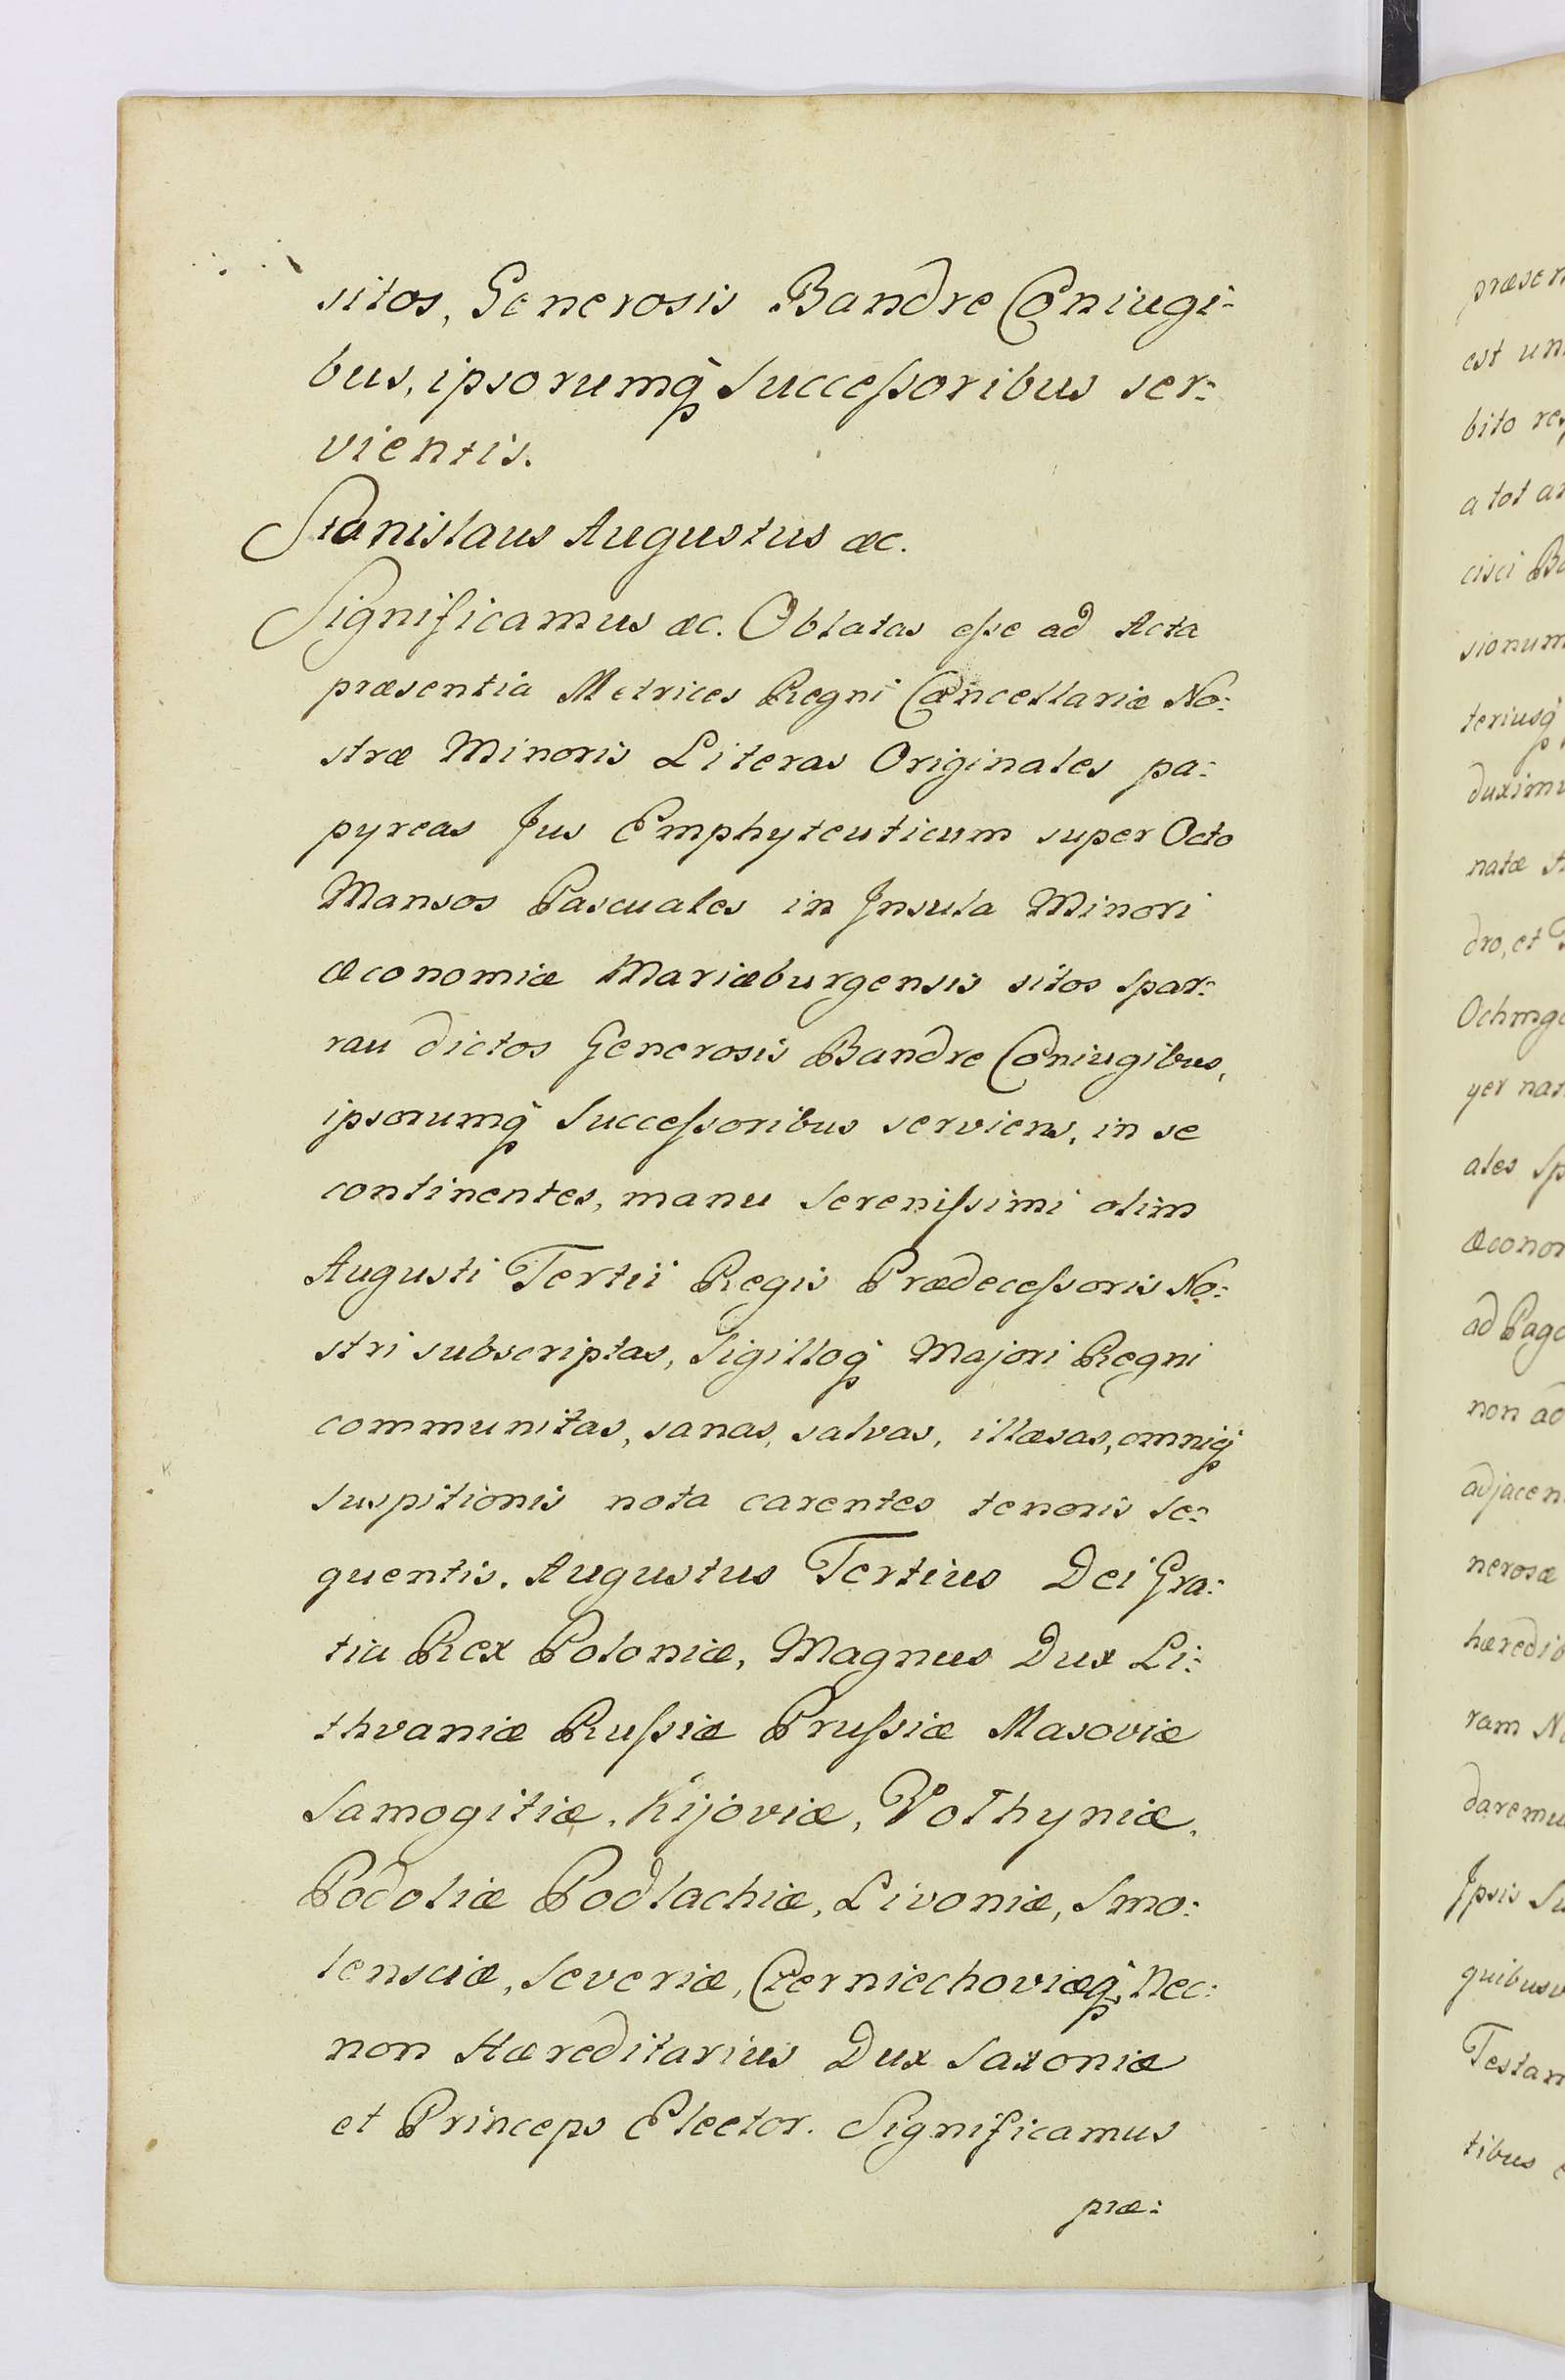 sitos, Generosis Bandre Coniugi-
bus, ipsorumq̃ Successoribus ser-
vientis.
Stanislaus Augustus &c.
Significamus &c. Oblatas esse ad Acta
præsentia Metrices Regni Cancellariæ No-
stræ Minoris Literas Originales pa-
pyreas Jus Emphyteuticum super Octo
Mansos Pascuales in Insula Minori
Œconomiæ Mariæburgensis sitos Spar-
rau dictos Generosis Bandre Coniugibus,
ipsorumq̃ Successoribus serviens, in se
continentes, manu Serenissimi olim
Augusti Tertii Regis Prædecessoris No-
stri subscriptas, Sigilloq̃ Majori Regni
communitas, sanas, salvas, illæsas, omniq̃
suspitionis nota carentes tenoris se-
quentis. Augustus Tertius Dei Gra-
tia Rex Poloniæ, Magnus Dux Li-
thvaniæ Russiæ Prussiæ Masoviæ
Samogitiæ, Kijoviæ, Volhyniæ,
Podoliæ Podlachiæ, Livoniæ, Smo-
lensciæ, Severiæ, Czerniechoviæq̃, Nec-
non Hæreditarius Dux Saxoniæ
et Princeps Elector. Significamus
præ-
præsen
est un
bito res
a tot an
cisci Ba
sionum
teriusq̃
duximu
natæ
dro, et
Ochmge
yer nat
ales Sp
Œconom
ad Pago
non ad
adjacen
nerosæ
hæredib
ram N
daremu
Ipsis Su
quibusv
Testam
tibus